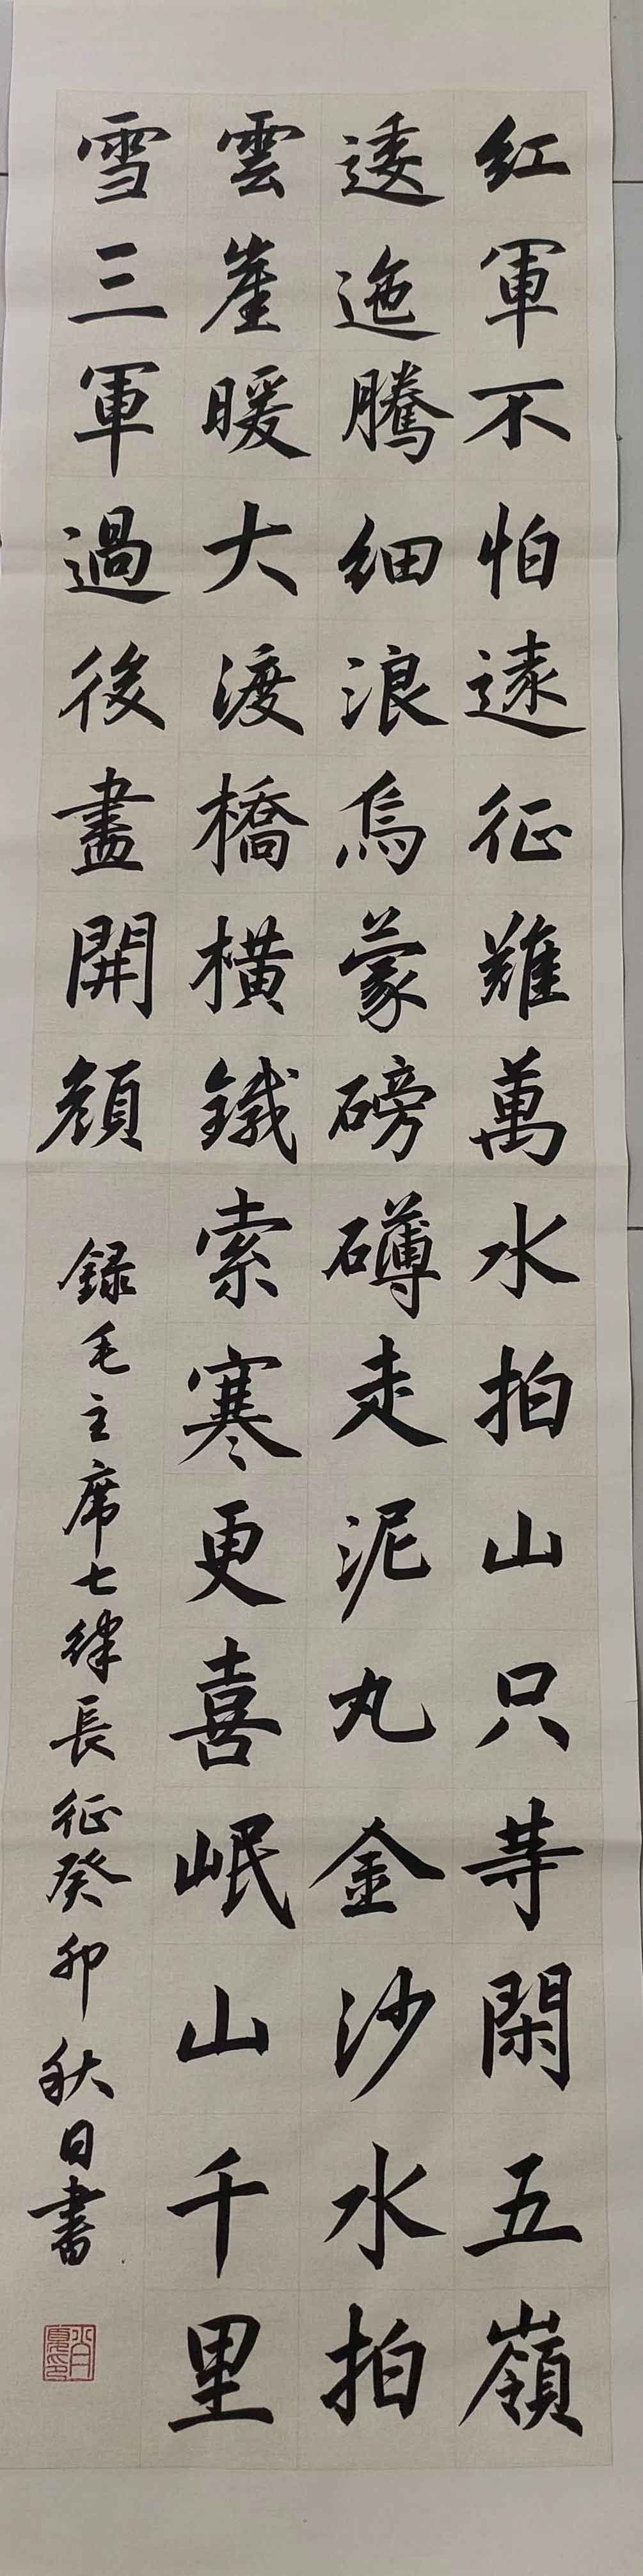 紅軍不怕遠征難萬水拍山只等閑五嶺
逶迤騰細浪烏蒙磅礴走泥丸金沙水拍
雲崖暖大渡橋橫鐵索寒更喜岷山千里
雪三軍過後盡開顏
録毛主席七律長征癸卯秋日書